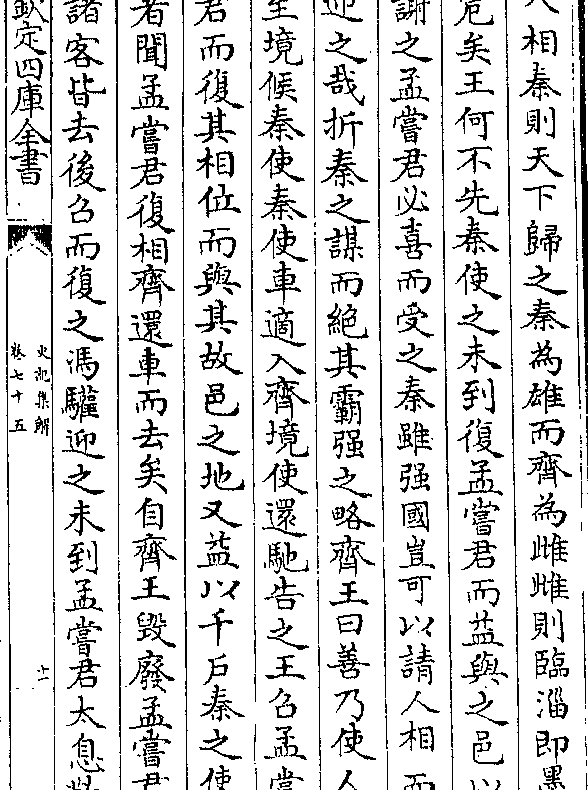 相秦則天下歸之秦為雄而齊為雌雌則臨淄即墨
危矣王何不先秦使之未到復孟嘗君而益與之邑以
謝之孟嘗君必喜而受之秦雖强國豈可以請人相而
迎之哉折秦之謀而絕其霸强之略齊王曰善乃使人
至境候秦使秦使車適入齊境使還馳告之王召孟嘗
君而復其相位而與其故邑之地又益以千戶秦之使
者聞孟嘗君復相齊還車而去矣自齊王毀廢孟嘗君
諸客皆去後召而復之馮驩迎之未到孟嘗君太息
欽定四庫全書
史記集解
卷七十五
十一